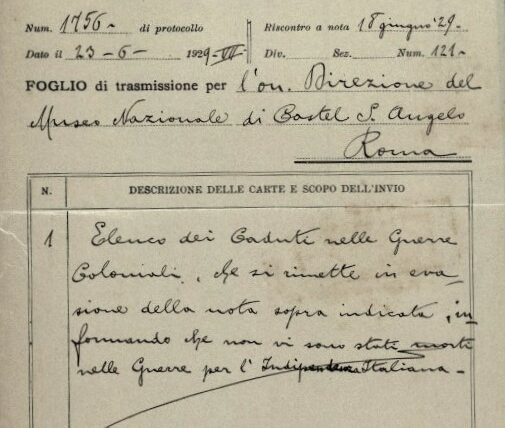 Num. 1756 di protocollo
Riscontro a nota 18 giugno '29.
Dato il 23-6- 1929-VII
Div. Sez. Num. 121
FOGLIO di trasmissione per l'on. Direzione del
Museo Nazionale di Castel S. Angelo
Roma
N. DESCRIZIONE DELLE CARTE E SCOPO DELL'INVIO
1 Elenco dei Caduti nelle Guerre
Coloniali, che si rimette in eva-
sione della nota sopra indicata, in-
formando che non vi sono state morti
nelle Guerre per l'Indipendenza Italiana.-